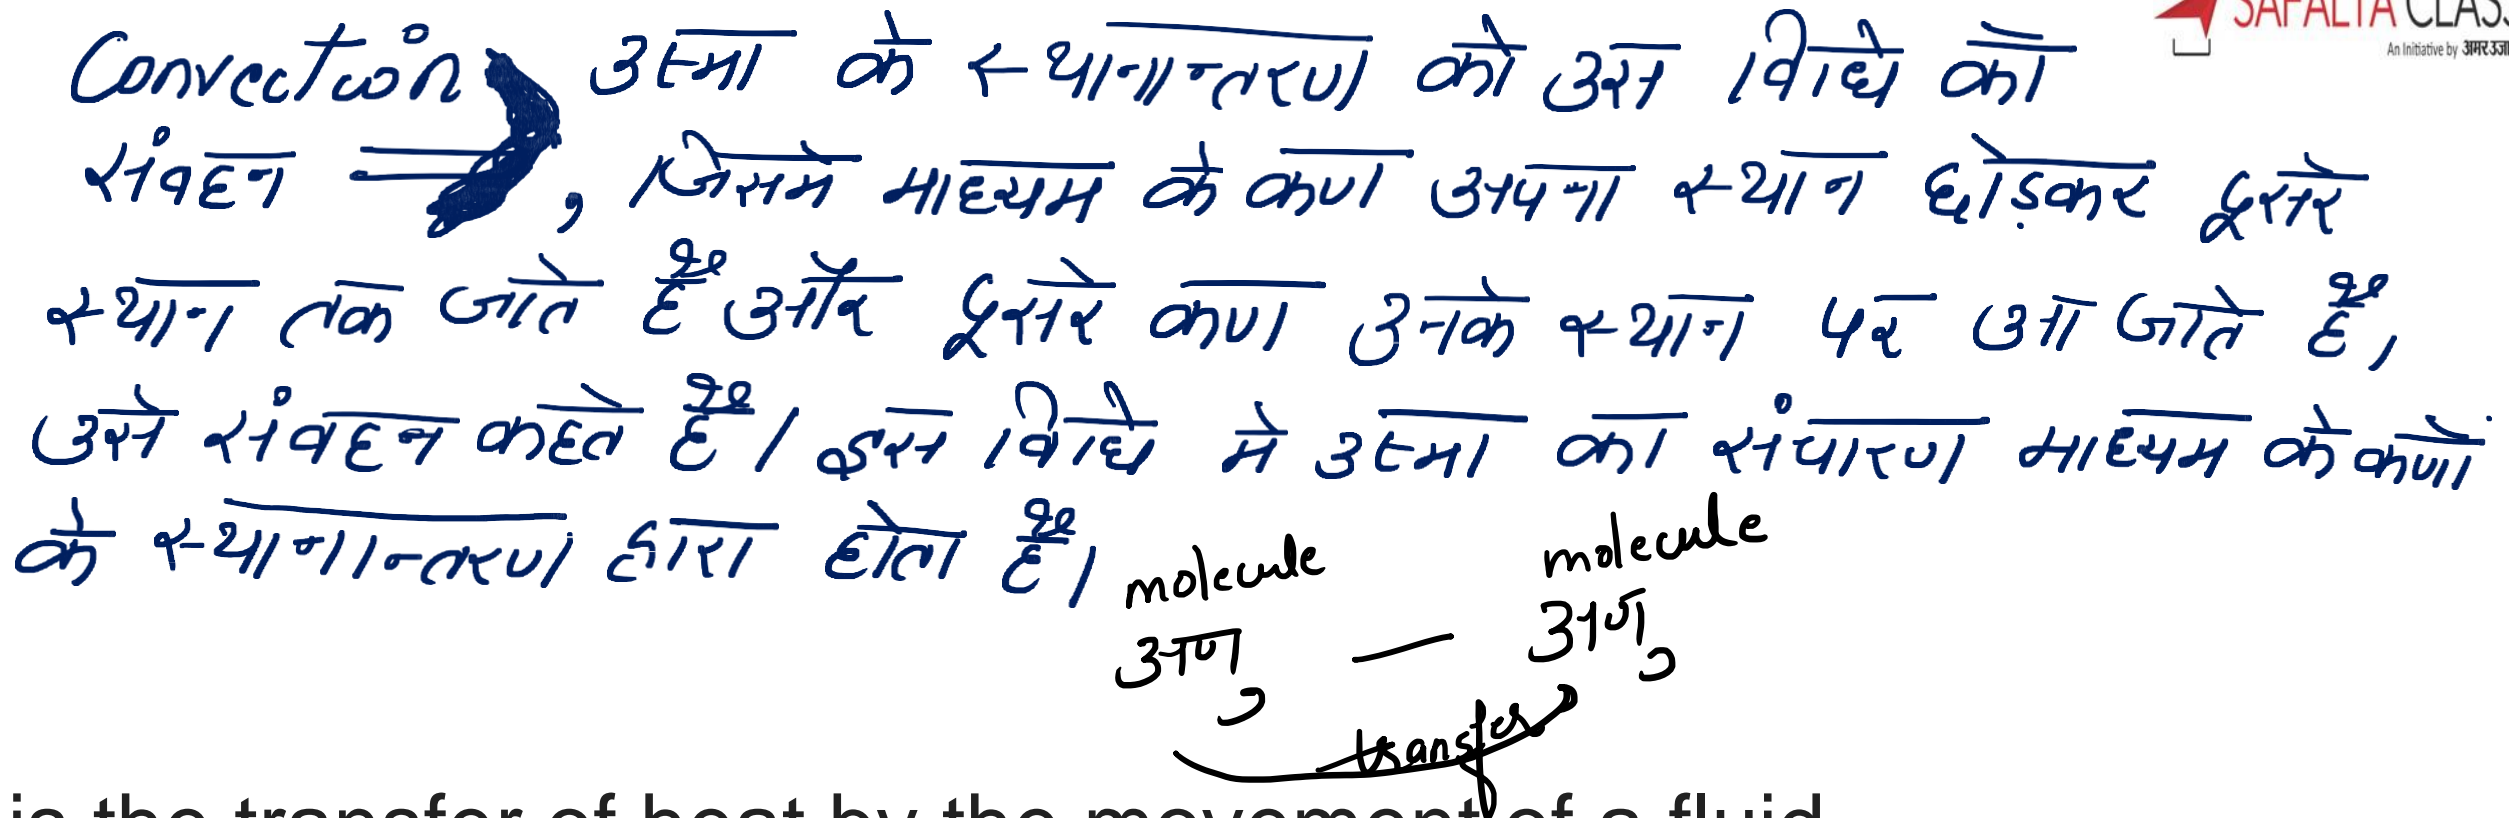 SAFALTA CLASS
An Initiative by अमर उजा
Convection उष्मा के स्थानान्तरण की उस विधि को
संवहन , जिसमे माध्यम के कण अपना स्थान छोड़कर दुसरे
स्थान तक जाते हैं और दुसरे कण उनके स्थान पर आ जाते हैं,
उसे संवहन कहते हैं। इस विधि मे उष्मा का संचारण माध्यम के कणो
के स्थानान्तरण द्वारा होता हैं।
molecule molecule
अणु — अणु
transfer
is the transfer of heat by the movement of a fluid